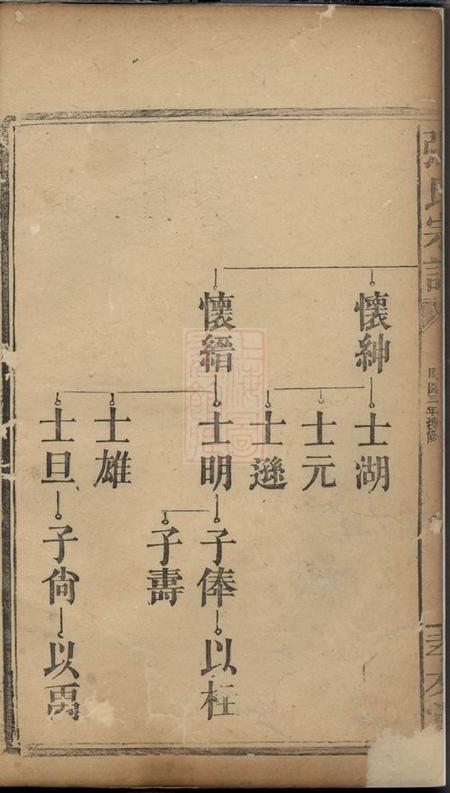 張氏宗譜
民國三年續修
懷紳
士湖
士元
士遜
懷縉
士明
子俸
以枉
子壽
士雄
士旦
子尙
以禹